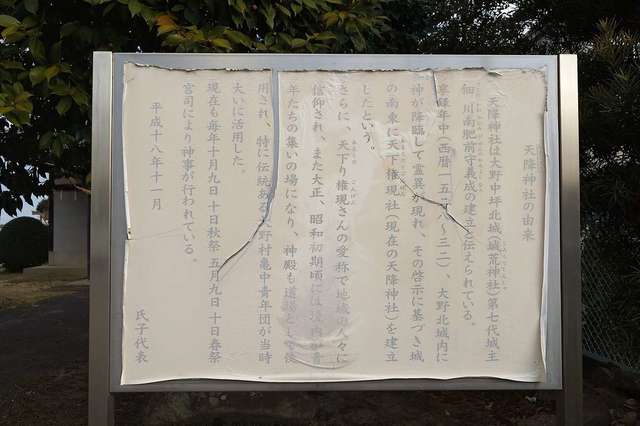 天降神社の由来
天降神社は大野中坪北城(城荒神社)第七代城主
細川南肥前守義成の建立と伝えられている。
享録年中(西暦一五二八~三二)、大野北城内に
神が降臨して霊異が現れ、その啓示に基づき城
の南東に天下権現社(現在の天降神社)を建立
したという。
さらに、天下り権現さんの愛称で地域の人々に
信仰され、また大正、昭和初期頃には境内が青
年たちの集いの場になり、神殿も道場として使
用され、特に伝統ある大野村亀中青年団が当時
大いに活用した。
現在も毎年十月九日十日秋祭 五月九日十日春祭
宮司により神事が行われている。
平成十八年十一月
氏子代表